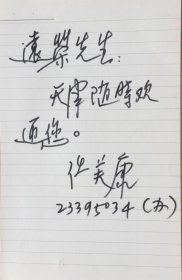 遠榮先生:
天津随時欢
迎您。
任芙康
23395034(办)